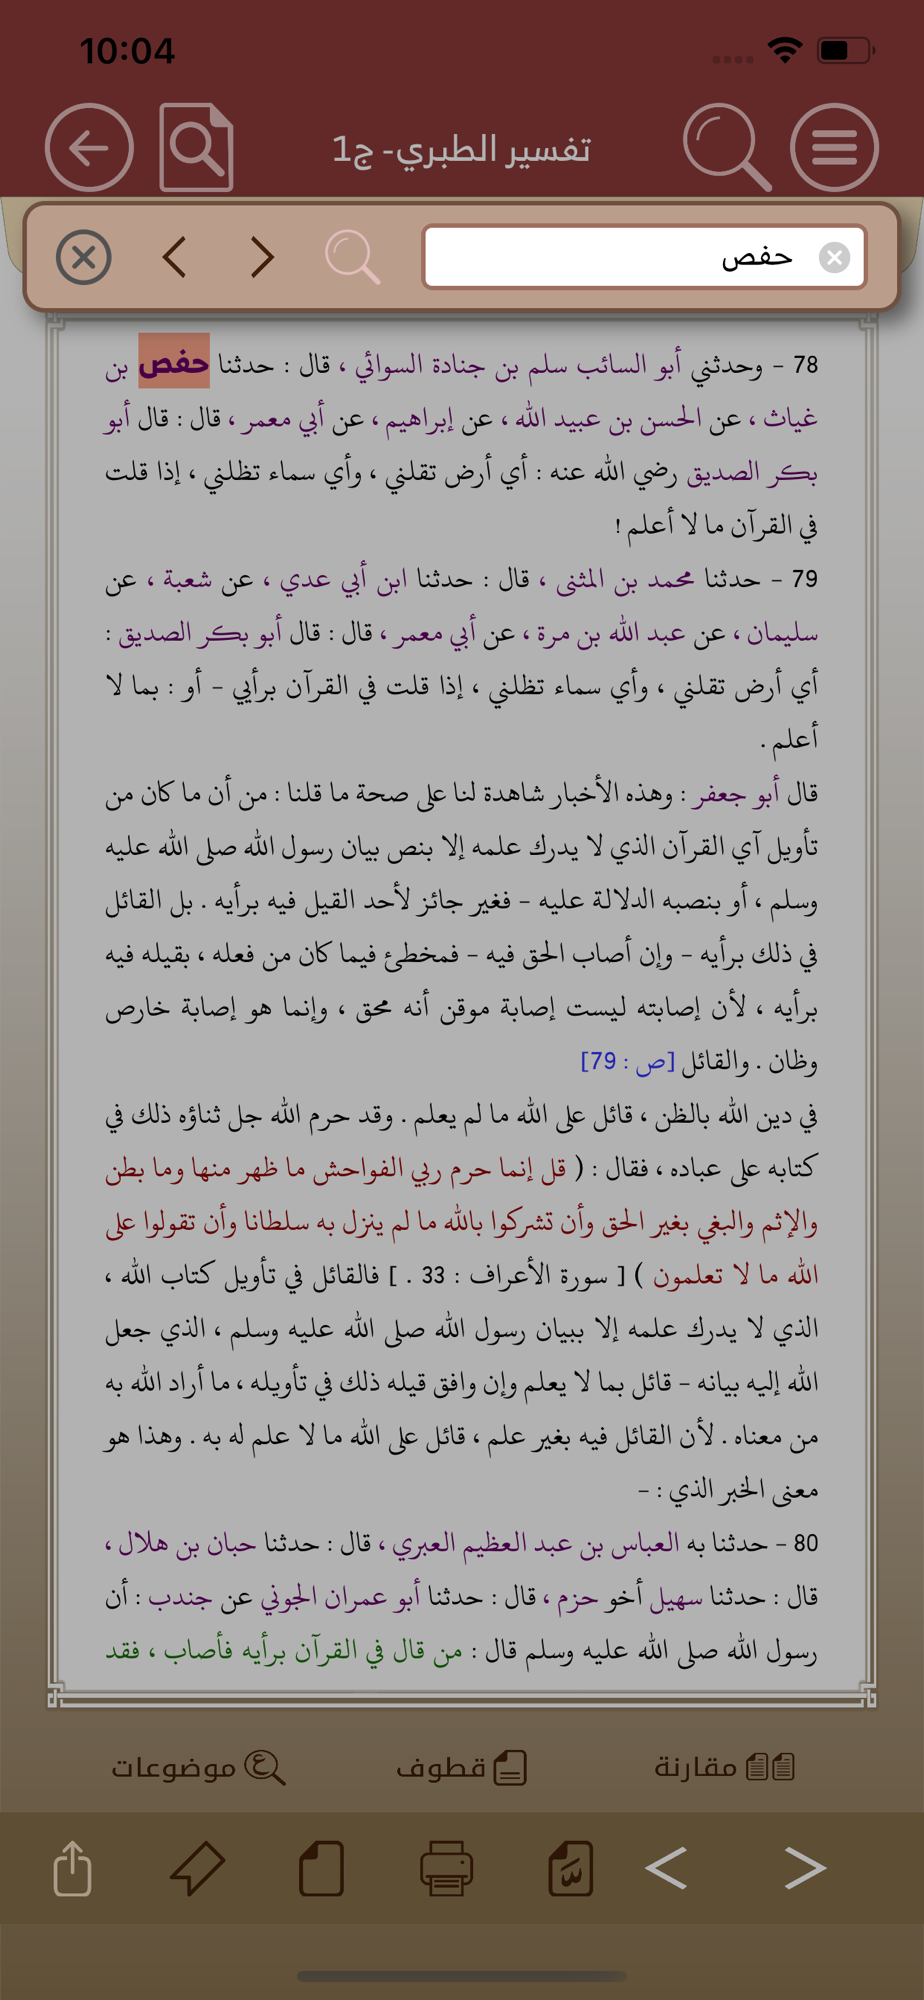 10:04
تفسير الطبري- ج1
حفص
78 - وحدثني أبو السائب سلم بن جنادة السوائي ، قال : حدثنا حفص بن
غياث ، عن الحسن بن عبيد الله ، عن إبراهيم ، عن أبي معمر ، قال : قال أبو
بكر الصديق رضي الله عنه : أي أرض تقلني ، وأي سماء تظلني ، إذا قلت
في القرآن ما لا أعلم !
79 - حدثنا محمد بن المثنى ، قال : حدثنا ابن أبي عدي ، عن شعبة ، عن
سليمان ، عن عبد الله بن مرة ، عن أبي معمر ، قال : قال أبو بكر الصديق :
أي أرض تقلني ، وأي سماء تظلني ، إذا قلت في القرآن برأيي - أو : بما لا
أعلم .
قال أبو جعفر : وهذه الأخبار شاهدة لنا على صحة ما قلنا : من أن ما كان من
تأويل آي القرآن الذي لا يدرك علمه إلا بنص بيان رسول الله صلى الله عليه
وسلم ، أو بنصبه الدلالة عليه - فغير جائز لأحد القيل فيه برأيه . بل القائل
في ذلك برأيه - وإن أصاب الحق فيه - فمخطئ فيما كان من فعله ، بقيله فيه
برأيه ، لأن إصابته ليست إصابة موقن أنه محق ، وإنما هو إصابة خارص
وظان . والقائل [ص : 79]
في دين الله بالظن ، قائل على الله ما لم يعلم . وقد حرم الله جل ثناؤه ذلك في
كتابه على عباده ، فقال : ( قل إنما حرم ربي الفواحش ما ظهر منها وما بطن
والإثم والبغي بغير الحق وأن تشركوا بالله ما لم ينزل به سلطانا وأن تقولوا على
الله ما لا تعلمون ) [ سورة الأعراف : 33 . ] فالقائل في تأويل كتاب الله ،
الذي لا يدرك علمه إلا ببيان رسول الله صلى الله عليه وسلم ، الذي جعل
الله إليه بيانه - قائل بما لا يعلم وإن وافق قيله ذلك في تأويله ، ما أراد الله به
من معناه . لأن القائل فيه بغير علم ، قائل على الله ما لا علم له به . وهذا هو
معنى الخبر الذي : -
80 - حدثنا به العباس بن عبد العظيم العبري ، قال : حدثنا حبان بن هلال ،
قال : حدثنا سهيل أخو حزم ، قال : حدثنا أبو عمران الجوني عن جندب : أن
رسول الله صلى الله عليه وسلم قال : من قال في القرآن برأيه فأصاب ، فقد
مقارنة قطوف موضوعات